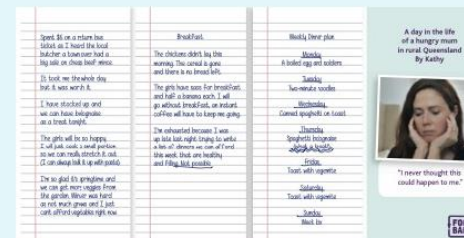 Spent $6 on a return bus
ticket as I heard the local
butcher a town over had a
big sale on cheap beef mince.
It took me the whole day
but it was worth it.
I have stocked up and
we can have bolognaise
as a treat tonight.
The girls will be so happy.
I will just cook a small portion
so we can really stretch it out.
(I can always bulk it up with pasta).
I'm so glad it's springtime and
we can get more veggies from
the garden. Winter was hard
as not much grows and I just
can't afford vegetables right now.
Breakfast.
The chickens didn't lay this
morning. The cereal is gone
and there is no bread left.
The girls have two for breakfast
and half a banana each. I will
go without breakfast, an instant
coffee will have to keep me going.
I'm exhausted because I was
up late last night trying to write
a list of dinners we can afford
this week that are healthy
and filling. Not possible.
Weekly Dinner plan
Monday
A boiled egg and soldiers
Tuesday
Two-minute noodles
Wednesday
Canned spaghetti on toast
Thursday
Spaghetti bolognaise
Friday
Toast with vegemite
Saturday
Toast with vegemite
Sunday
A day in the life
of a hungry mum
in rural Queensland
By Kathy
"I never thought this
could happen to me."